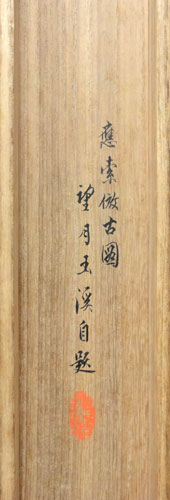 應索倣古圖
望月玉溪自題